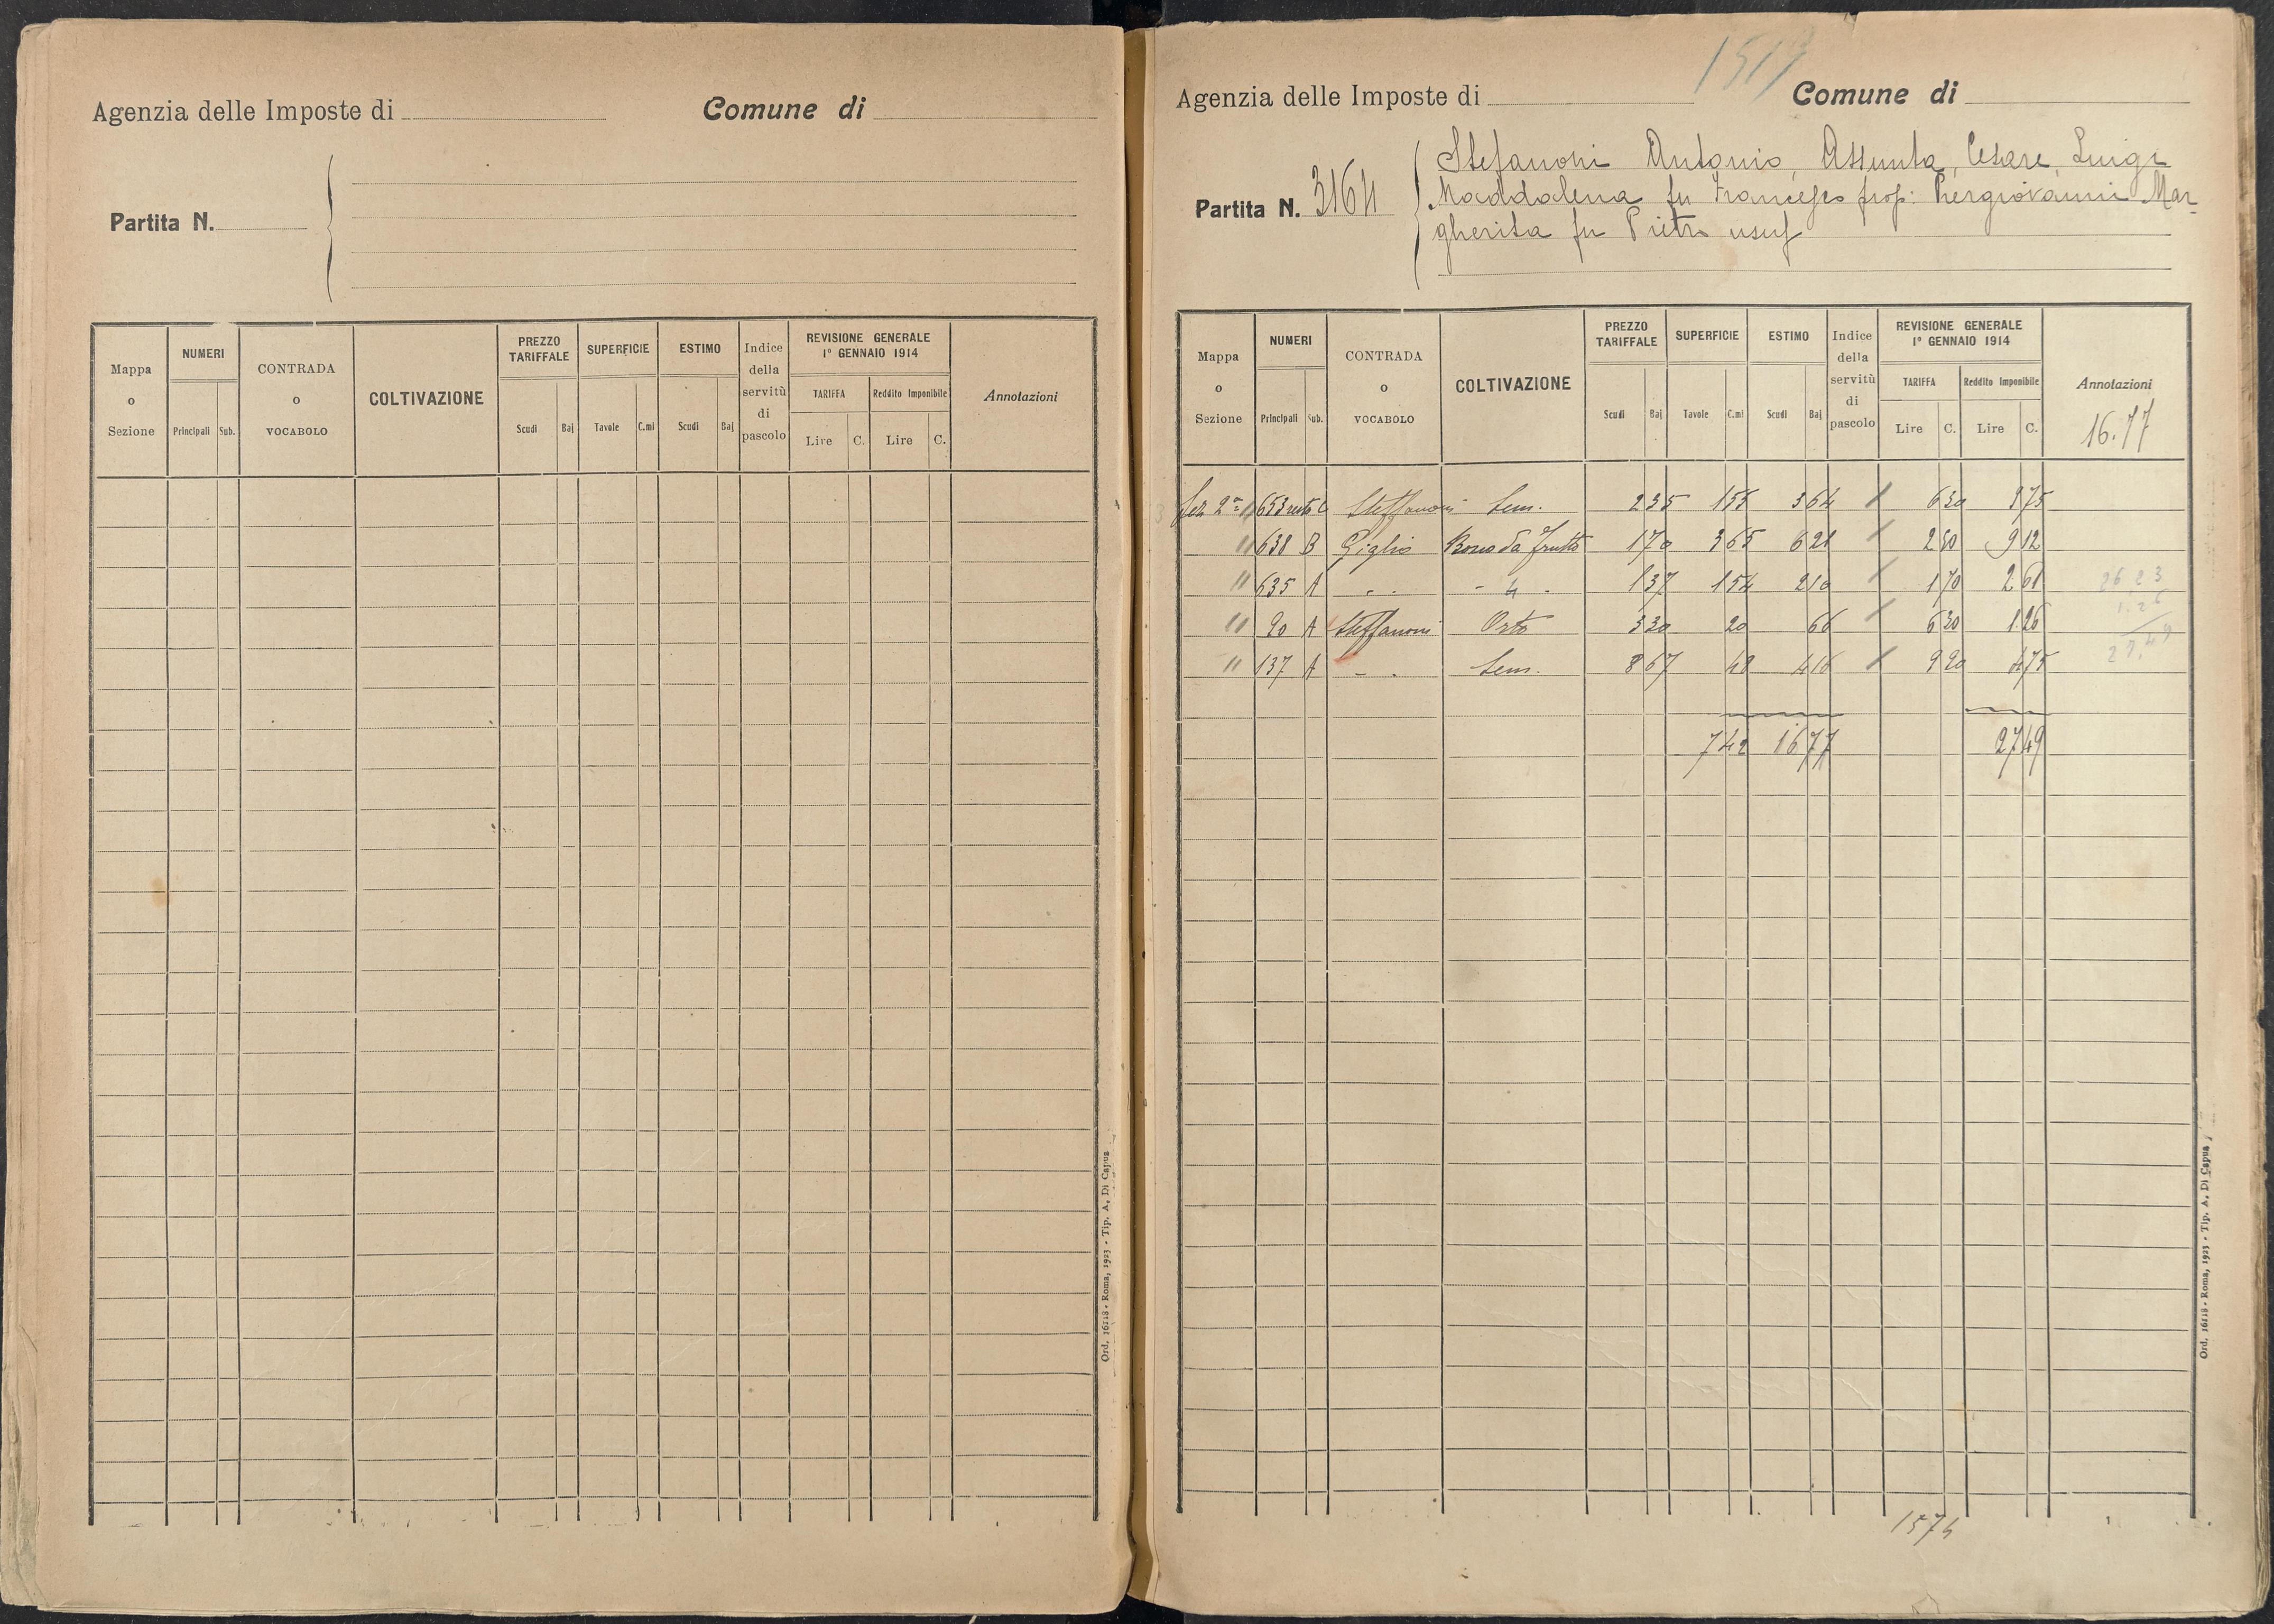 Agenzia delle Imposte di
Comune di
Partita N.
Mappa o Sezione
NUMERI
Principali Sub.
CONTRADA o VOCABOLO
COLTIVAZIONE
PREZZO TARIFFALE
Scudi Baj
SUPERFICIE
Tavole C.mi
ESTIMO
Scudi Baj
Indice della servitù di pascolo
REVISIONE GENERALE 1° GENNAIO 1914
TARIFFA
Lire C.
Reddito Imponibile
Lire C.
Annotazioni
Ord. 16118 - Roma, 1923 - Tip. A. Di Capua
Agenzia delle Imposte di
Comune di
Partita N. 3164
Stefanoni Antonio, Assunta, Cesare, Luigi
Maddalena fu Francesco prop: Piergiovanni Mar-
gherita fu Pietro usuf
Mappa o Sezione
NUMERI
Principali Sub.
CONTRADA o VOCABOLO
COLTIVAZIONE
PREZZO TARIFFALE
Scudi Baj
SUPERFICIE
Tavole C.mi
ESTIMO
Scudi Baj
Indice della servitù di pascolo
REVISIONE GENERALE 1° GENNAIO 1914
TARIFFA
Lire C.
Reddito Imponibile
Lire C.
Annotazioni
16.77
Sez 2ª 653 resto C Steffanoni Sem. 2 35 1 55 3 64 / 6 30 9 75
" 638 B Giglio Bosco da frutto 1 70 3 65 6 21 / 2 50 9 12
" 635 A " " 1 37 1 54 2 10 / 1 70 2 61
" 90 A Steffanoni Orto 3 30 20 66 / 6 30 1 26
" 137 A " Sem. 8 67 48 4 16 / 9 90 4 75
7 42 16 77 27 49
26,23
1.26
27,49
1574
Ord. 16118 - Roma, 1923 - Tip. A. Di Capua